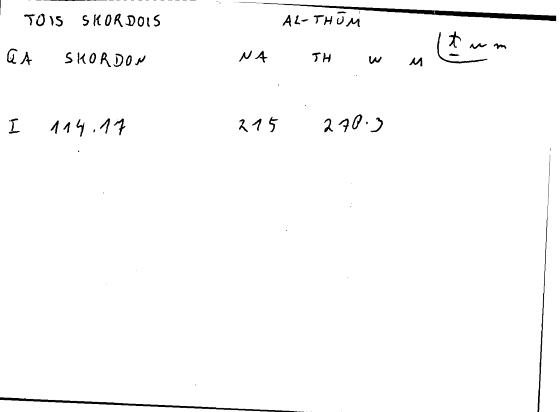 TOIS SKORDOIS AL-THŪM
GA SKORDON NA TH W M ṯwm
I 114.17 215 270.3